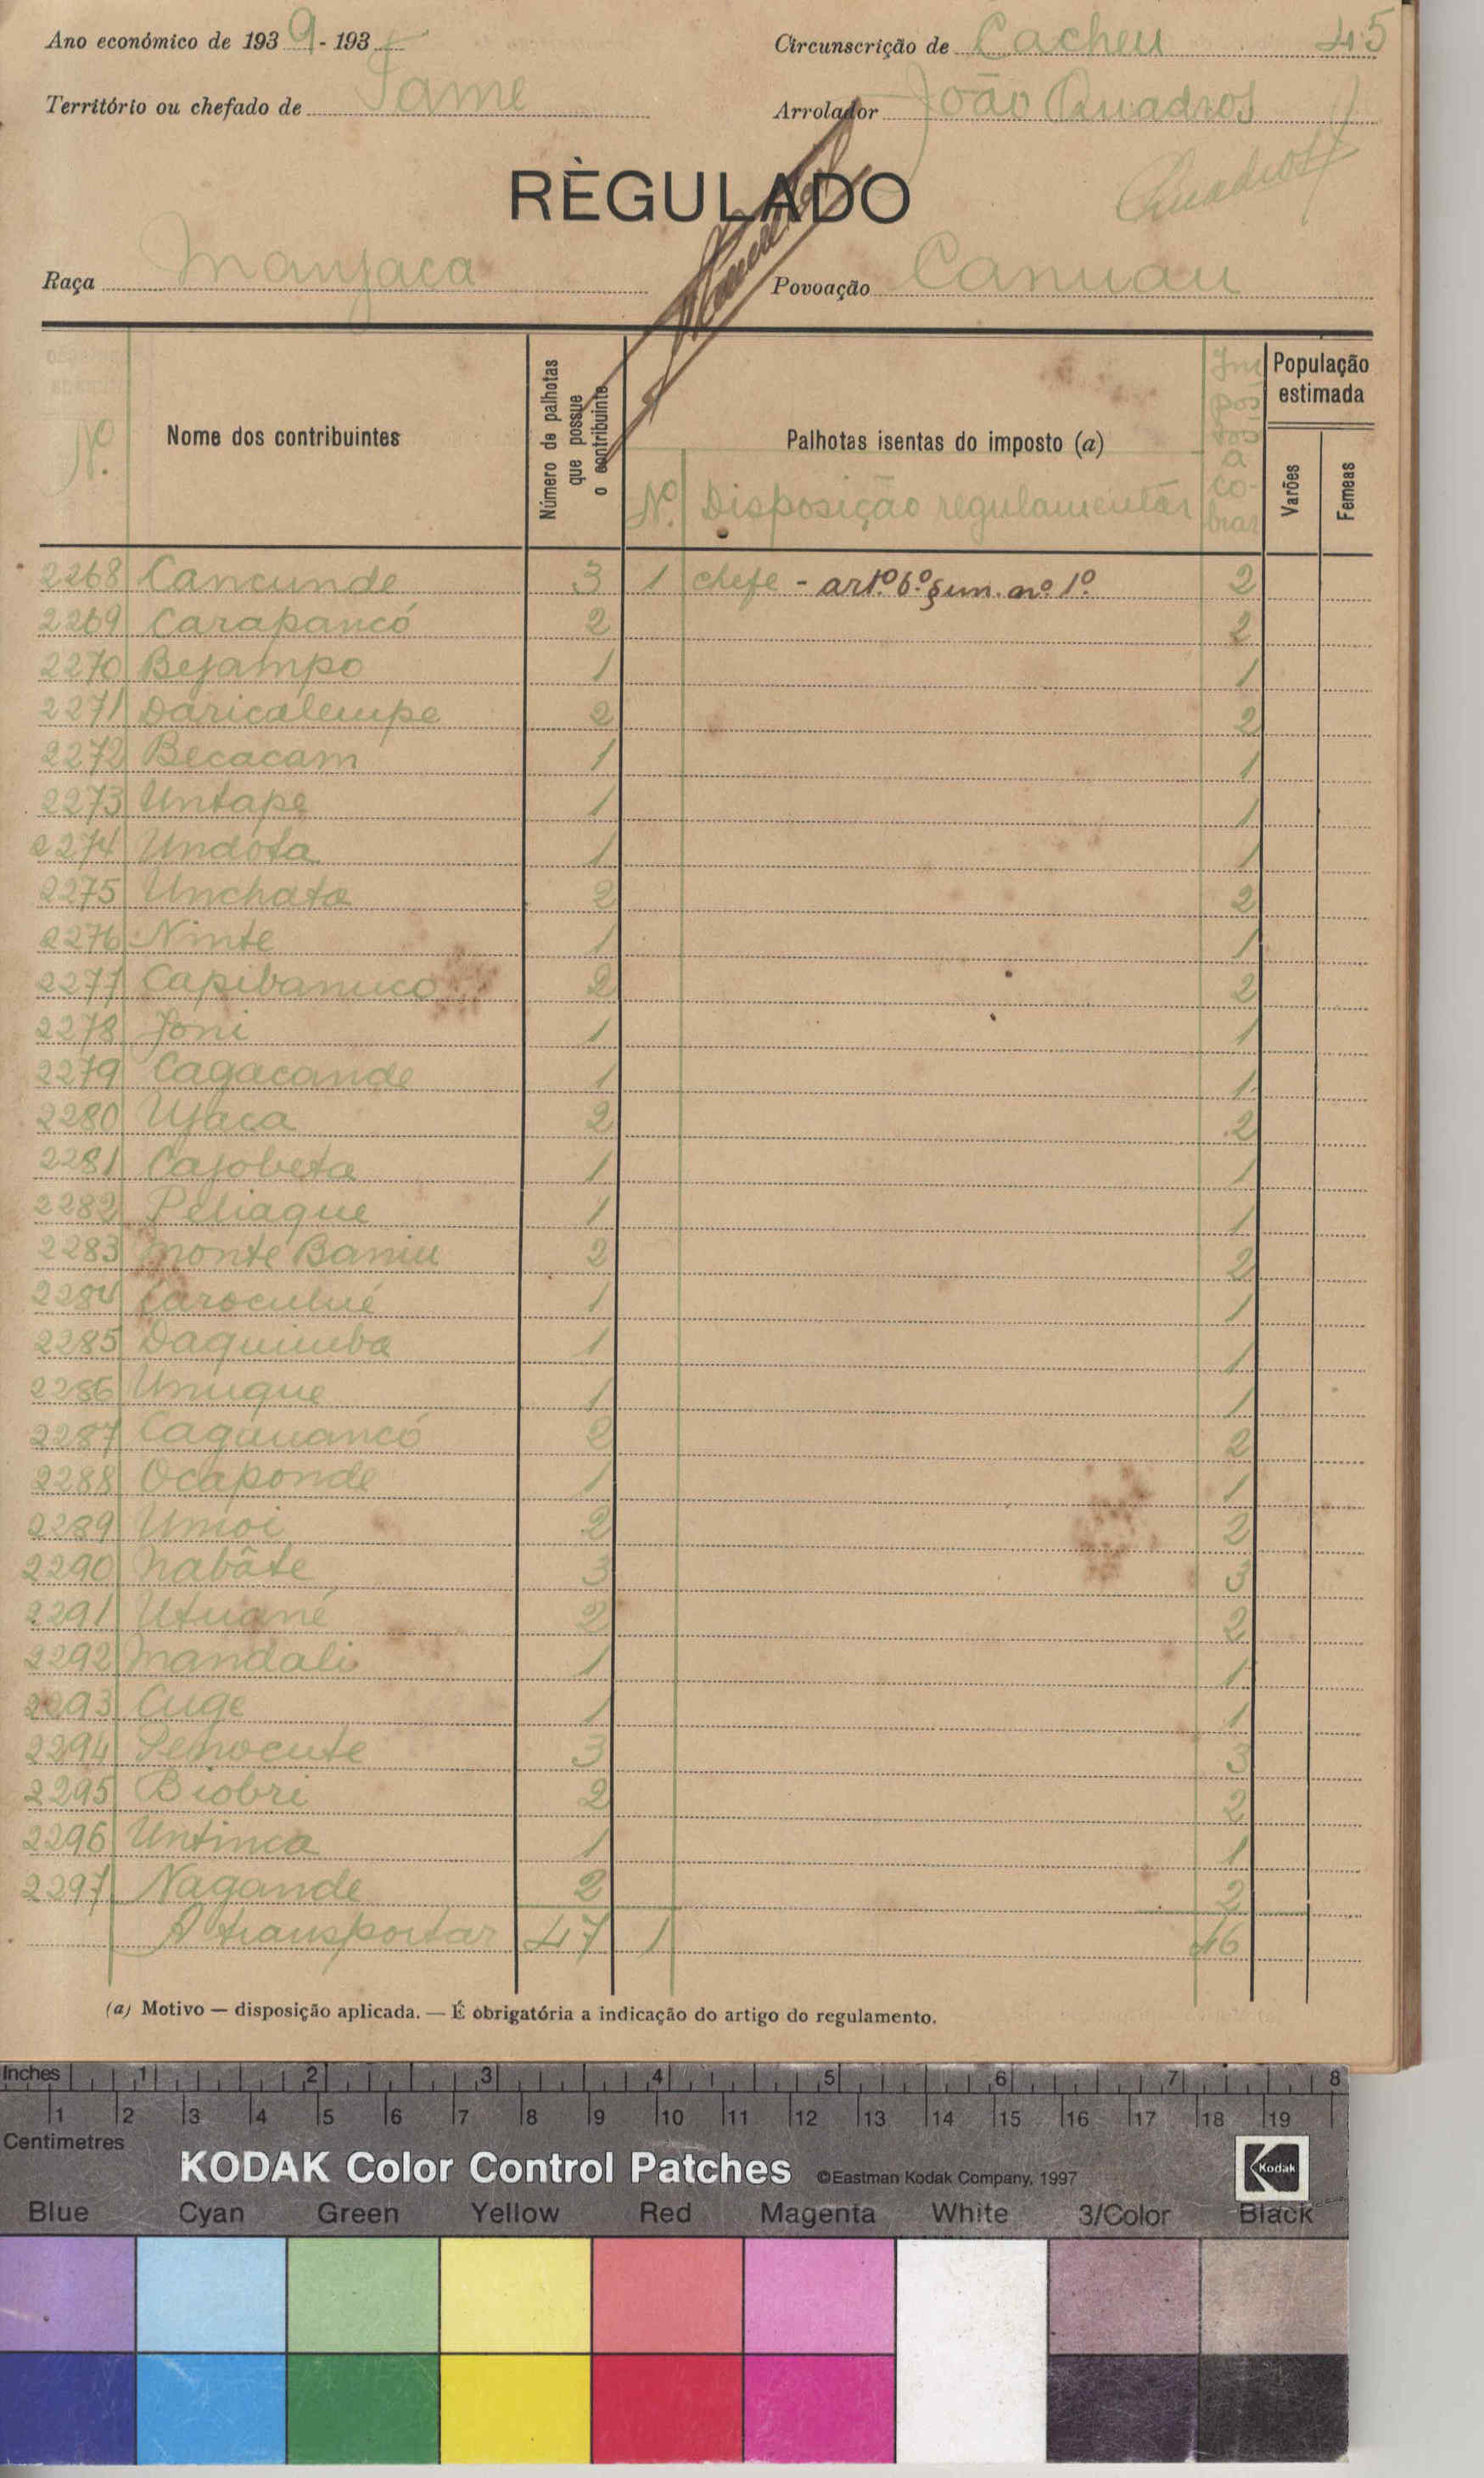 Ano económico de 1939-193
Circunscrição de Cacheu 45
Território ou chefado de Tame
Arrolador João Quadros
RÈGULADO
Quadros
Raça Manjaca
Povoação Canuau
Nº.
Nome dos contribuintes
Número de palhotas que possue o contribuinte
Palhotas isentas do imposto (a)
Nº. Disposição regulamentar
Impostos a cobrar
População estimada
Varões
Femeas
2268 Cancunde 3 1 chefe - artº. 6º. § un. nº 1º. 2
2269 Carapancó 2 2
2270 Bejampo 1 1
2271 Daricalempe 2 2
2272 Becacam 1 1
2273 Untape 1 1
2274 Undota 1 1
2275 Unchata 2 2
2276 Ninte 1 1
2277 Capibanuco 2 2
2278 Joni 1 1
2279 Cagacande 1 1
2280 Ujaca 2 2
2281 Cajobeta 1 1
2282 Peliaque 1 1
2283 Monte Baniu 2 2
2284 Caroculué 1 1
2285 Daquimba 1 1
2286 Unuque 1 1
2287 Cagauancó 2 2
2288 Ocaponde 1 1
2289 Umoi 2 2
2290 Nabâte 3 3
2291 Utuané 2 2
2292 Mandali 1 1
2293 Cuge 1 1
2294 Senocute 3 3
2295 Biobri 2 2
2296 Untinca 1 1
2297 Nagande 2 2
A transportar 47 1 46
(a) Motivo — disposição aplicada. — É obrigatória a indicação do artigo do regulamento.
Inches 1 2 3 4 5 6 7 8
1 2 3 4 5 6 7 8 9 10 11 12 13 14 15 16 17 18 19
Centimetres
KODAK Color Control Patches ©Eastman Kodak Company, 1997 Kodak
Blue Cyan Green Yellow Red Magenta White 3/Color Black